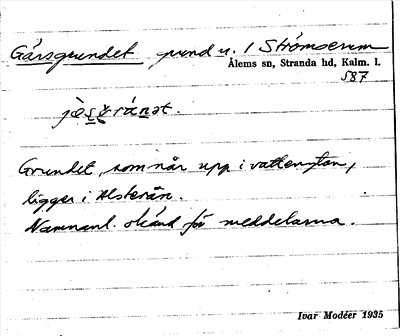 Gåsgrundet grund u. 1 Strömserum
Ålems sn, Stranda hd, Kalm. l.
587
Grundet, som når upp i vattenytan,
ligger i Alsterån.
Namnanl. okänd för meddelarna.
Ivar Modéer 1935